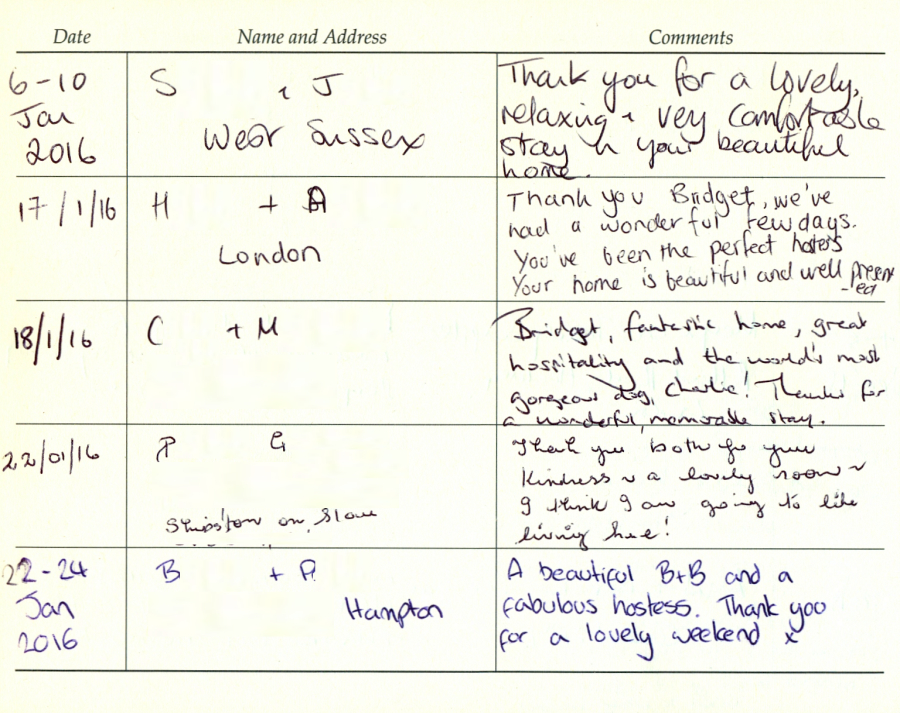 Date Name and Address Comments
6-10
Jan
2016
S & J
West Sussex
Thank you for a lovely,
relaxing & very comfortable
stay in your beautiful
home.
17/1/16
H + A
London
Thank you Bridget, we've
had a wonderful few days.
You've been the perfect hosters
Your home is beautiful and well present
-ed
18/1/16
C + M
Bridget, fantastic home, great
hospitality and the world's most
gorgeous dog, Charlie! Thanks for
a wonderful, memorable stay.
22/01/16
P G
Shipston on Stour
Thank you both for your
kindness ~ a lovely room ~
I think I am going to like
living here!
22-24
Jan
2016
B + A
Hampton
A beautiful B+B and a
fabulous hostess. Thank you
for a lovely weekend x